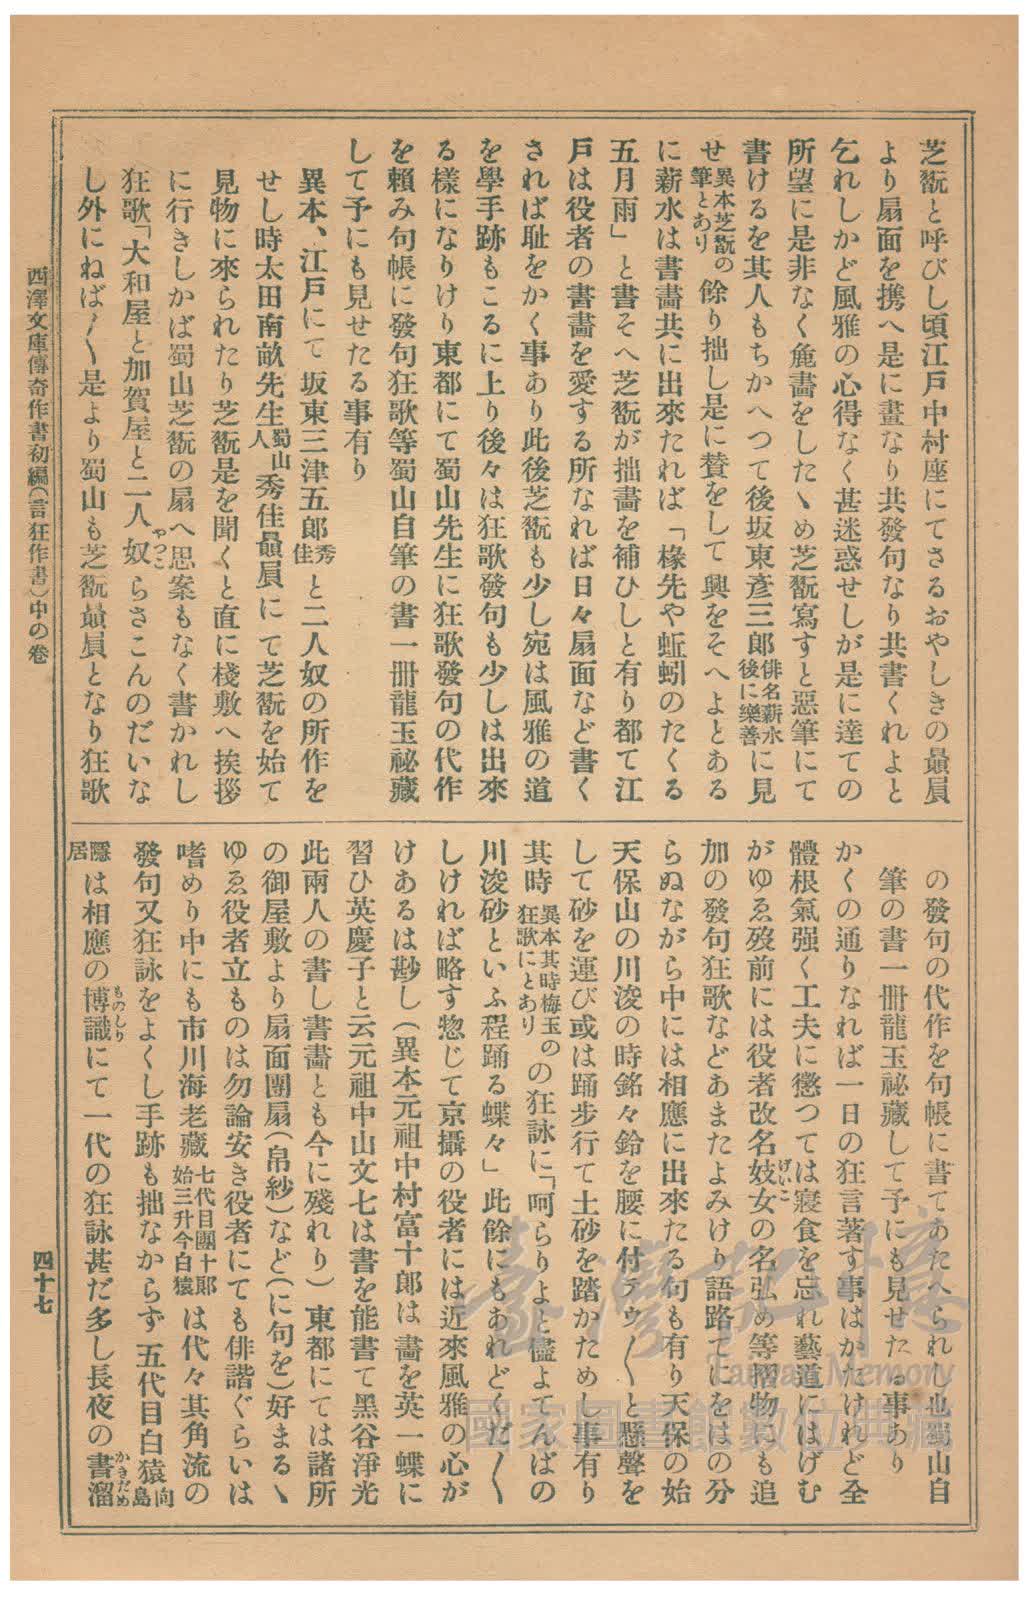 芝翫と呼びし頃江戸中村座にてさるおやしきの贔屓
より扇面を携へ是に畫なり共發句なり共書くれよと
乞れしかど風雅の心得なく甚迷惑せしが是に達ての
所望に是非なく麁畫をしたゝめ芝翫寫すと惡筆にて
書けるを其人もちかへつて後坂東彥三郎俳名薪水後に樂善に見
せ異本芝翫の筆とあり餘り拙し是に賛をして興をそへよとある
に薪水は書畫共に出來たれば「椽先や蚯蚓のたくる
五月雨」と書そへ芝翫が拙畫を補ひしと有り都て江
戸は役者の書畫を愛する所なれば日々扇面など書く
されば耻をかく事あり此後芝翫も少し宛は風雅の道
を學手跡もこるに上り後々は狂歌發句も少しは出來
る樣になりけり東都にて蜀山先生に狂歌發句の代作
を賴み句帳に發句狂歌等蜀山自筆の書一冊龍玉祕藏
して予にも見せたる事有り
異本、江戸にて坂東三津五郎秀佳と二人奴の所作を
せし時太田南畝先生蜀山人秀佳贔屓にて芝翫を始て
見物に來られたり芝翫是を聞くと直に棧敷へ挨拶
に行きしかば蜀山芝翫の扇へ思案もなく書かれし
狂歌「大和屋と加賀屋と二人奴やつこらさこんのだいな
し外にねば〳〵是より蜀山も芝翫贔屓となり狂歌
の發句の代作を句帳に書てあたへられし也蜀山自
筆の書一冊龍玉祕藏して予にも見せたる事あり
かくの通りなれば一日の狂言著す事はかたけれど全
體根氣强く工夫に懲つては寢食を忘れ藝道にはげむ
がゆゑ歿前には役者改名妓女げいこの名弘め等摺物にも追
加の發句狂歌などあまたよみけり語路てにをはの分
らぬながら中には相應に出來たる句も有り天保の始
天保山の川浚の時銘々鈴を腰に付テウ〳〵と懸聲を
して砂を運び或は踊步行て土砂を踏かためし事有り
其時異本其時梅玉の狂歌にとありの狂詠に「呵らりよと儘よてんぽの
川浚砂といふ程踊る蝶々」此餘にもあれどくだ〳〵
しければ略す惣じて京攝の役者には近來風雅の心が
けあるは尠し(異本元祖中村富十郎は畫を英一蝶に
習ひ英慶子と云元祖中山文七は書を能書て黑谷淨光
此兩人の書し書畫とも今に殘れり)東都にては諸所
の御屋敷より扇面團扇(帛紗)など(に句を)好まるゝ
ゆゑ役者立ものは勿論安き役者にても俳諧ぐらいは
嗜めり中にも市川海老藏七代目團十郎始三升今白猿は代々其角流の
發句又狂詠をよくし手跡も拙なからず五代目白猿向島
隱居は相應の博識ものしりにて一代の狂詠甚だ多し長夜の書溜かきだめ
西澤文庫傳奇作書初編(言狂作書)中の卷
四十七
臺灣記憶
Taiwan Memory
國家圖書館數位典藏